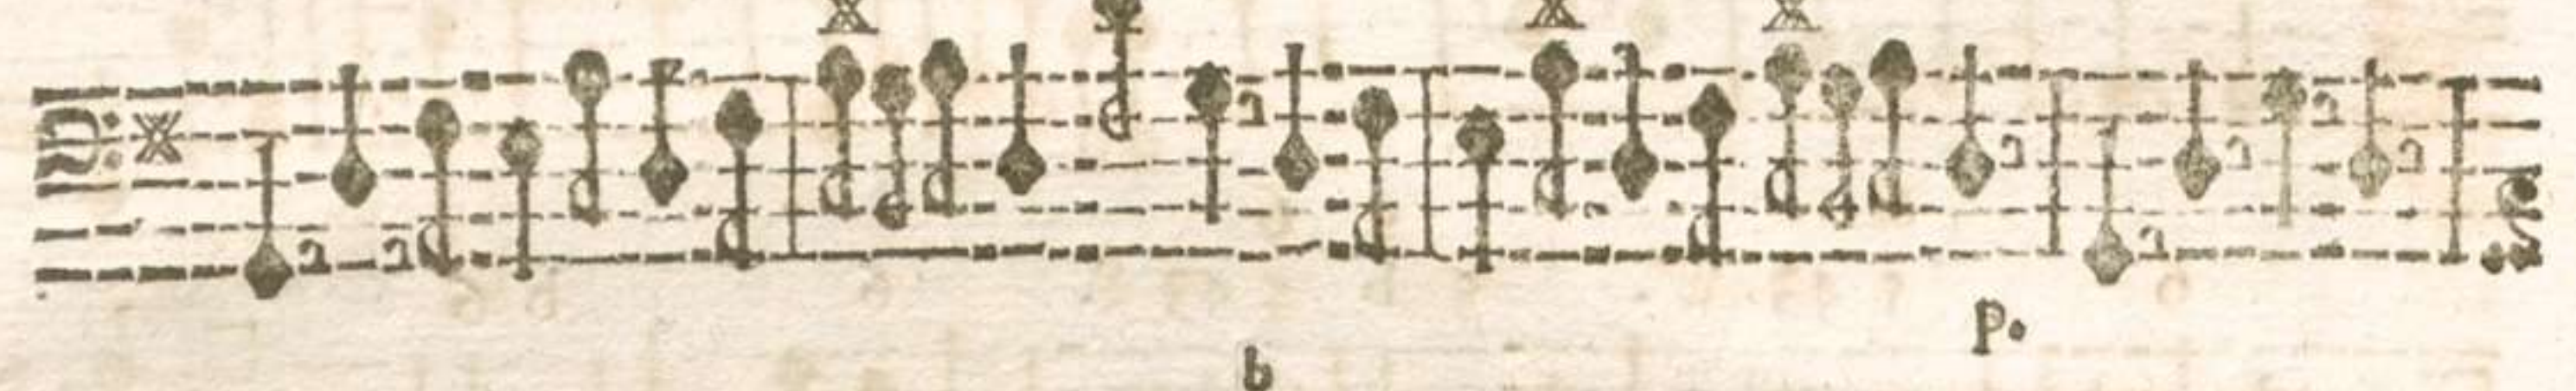 p.
b